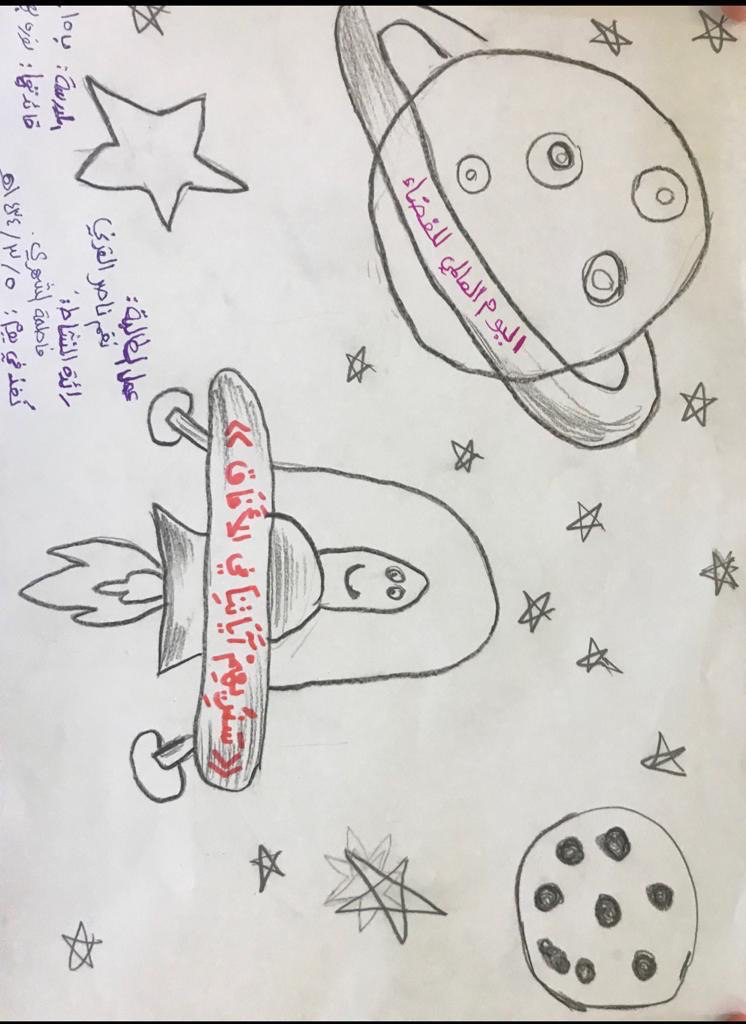 اليوم العالمي للفضاء
«سنريهم آياتنا في الآفاق»
عمل الطالبة:
نغم ناصر القرني
رائدة النشاط:
فاطمة الشهري
نفذ في يوم:
المدرسة:
قائدتها: